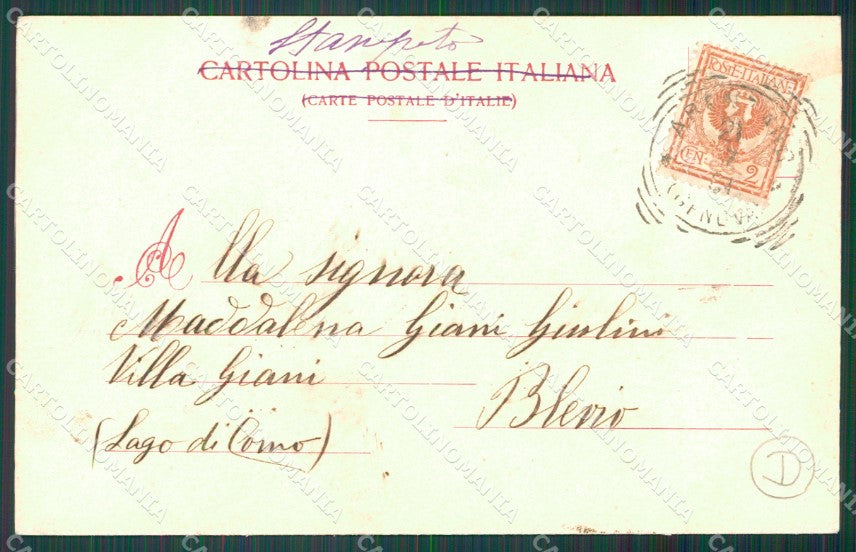 Stampato
CARTOLINA POSTALE ITALIANA
(CARTE POSTALE D'ITALIE)
POSTE ITALIANE
CEN. 2
21
(GENOVA)
Alla signora
Maddalena Giani Giulini
Villa Giani
Blevio
(Lago di Como)
D
CARTOLINOMANIA